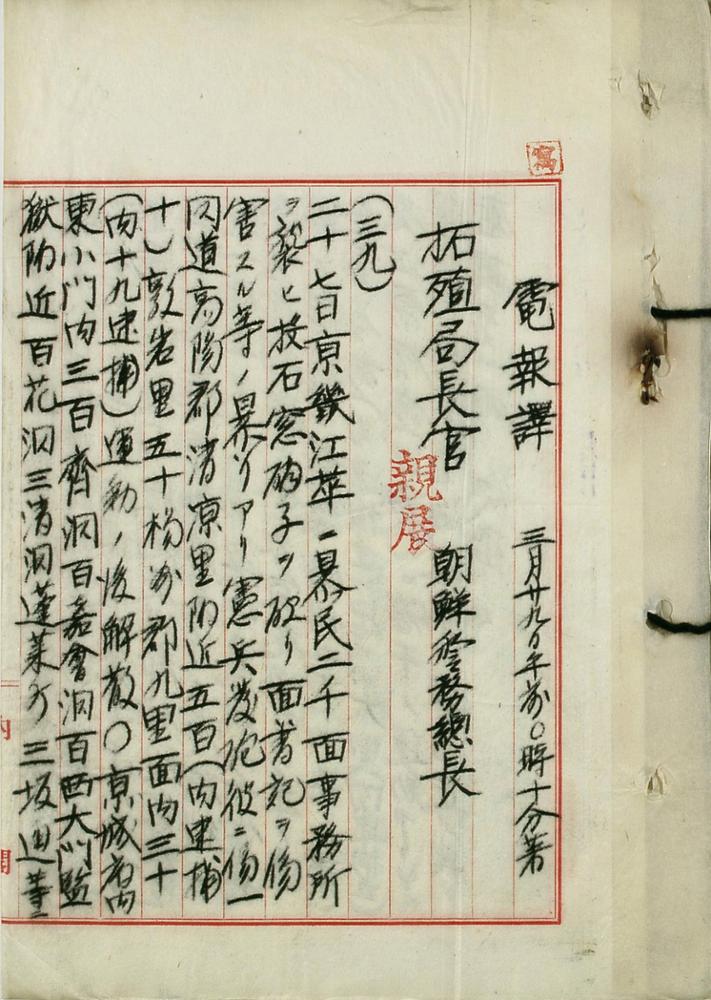 寫
電報譯 三月廿九日午前〇時十分着
拓殖局長官 朝鮮警務總長
親展
(三九)
二十七日京畿江華ニ暴民二千面事務所
ヲ襲ヒ投石窓硝子ヲ破リ面書記ヲ傷
害スル等ノ暴行アリ憲兵發砲彼ニ傷一
同道高陽郡清凉里附近五百(内逮捕
十)敦岩里五十楊州郡九里面内三十
(内十九逮捕)運動ノ後解散〇京城府内
東小門内三百齊洞百嘉會洞百西大門監
獄附近百花洞三清洞蓬莱町三坂通等ニ
内閣